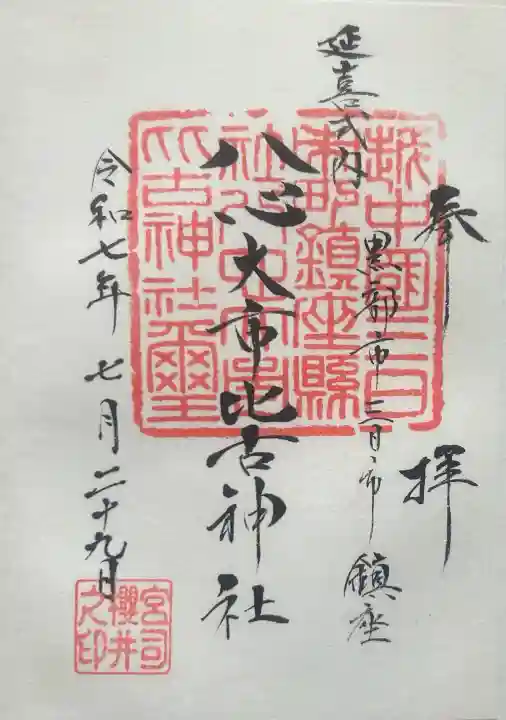 奉拝
延喜式内
黒部市三日市鎮座
八心大市比古神社
令和七年 七月二十九日
越中國三日
鎮座縣
社八心大市
比古神社璽
宮司
櫻井
之印